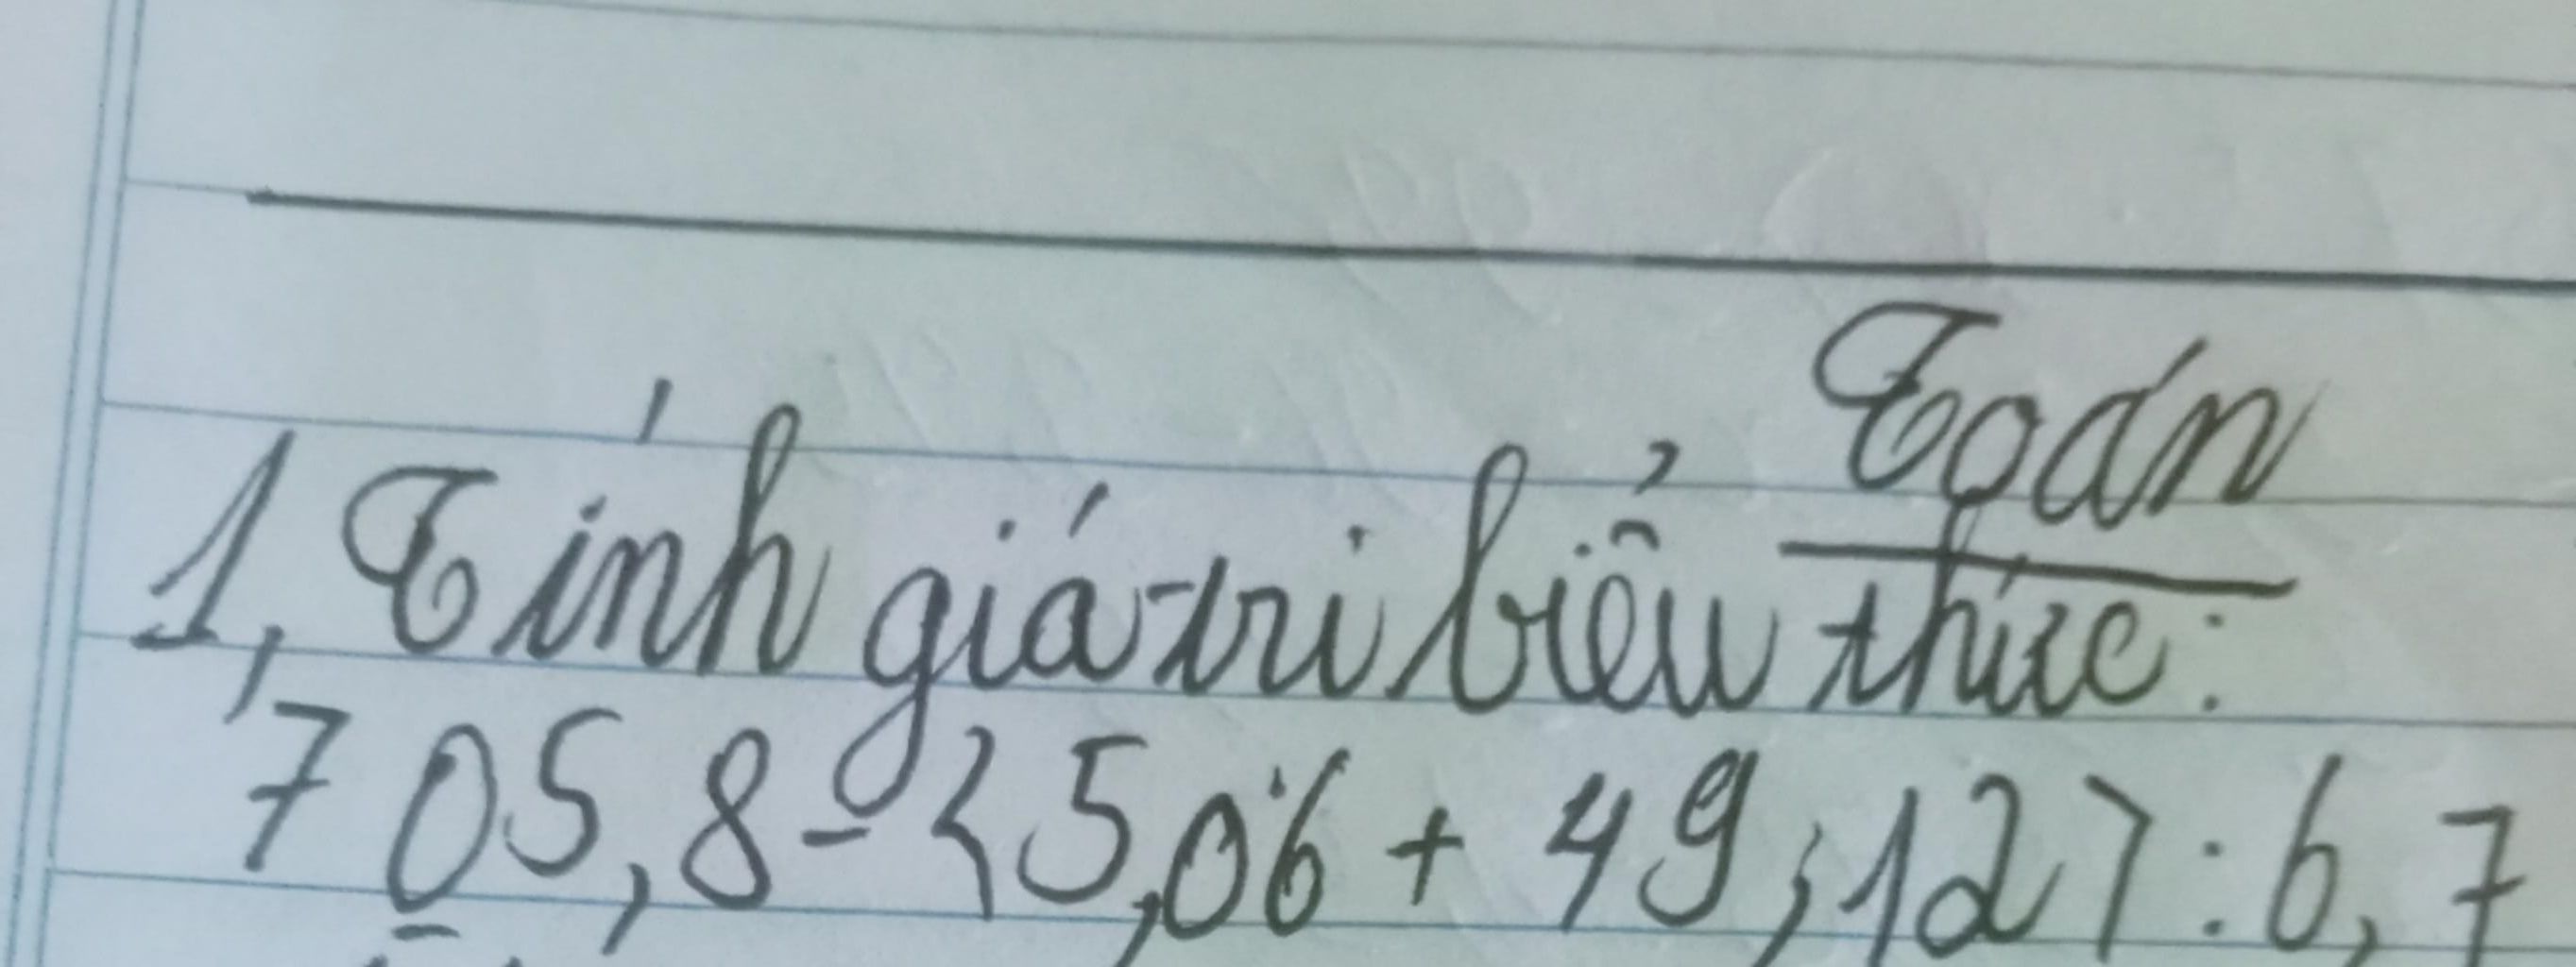 Toán
1, Tính giá trị biểu thức:
705,8 - { 5,06 + 49,12 } : 6,7